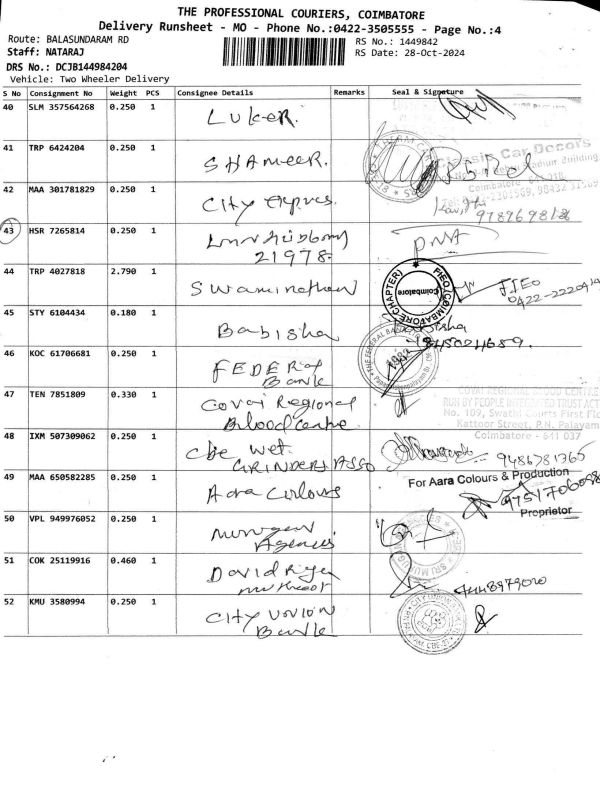 THE PROFESSIONAL COURIERS, COIMBATORE
Delivery Runsheet - MO - Phone No.:0422-3505555 - Page No.:4
Route: BALASUNDARAM RD
RS No.: 1449842
Staff: NATARAJ
RS Date: 28-Oct-2024
DRS No.: DCJB144984204
Vehicle: Two Wheeler Delivery
S No Consignment No Weight PCS Consignee Details Remarks Seal & Signature
40 SLM 357564268 0.250 1 Luker.
41 TRP 6424204 0.250 1 SHAMEER.
Classic Car Decors
Nehru Stadium Building,
Coimbatore
42 MAA 301781829 0.250 1 City
43 HSR 7265814 0.250 1
21978.
44 TRP 4027818 2.790 1 Swaminathan
FIEO (COIMBATORE CHAPTER)
Coimbatore
FIEO
0422-2220914
45 STY 6104434 0.180 1 Babisha
46 KOC 61706681 0.250 1 FEDERal
Bank
THE FEDERAL BANK
47 TEN 7851809 0.330 1 Covai Regional
Blood Centre
COVAI REGIONAL BLOOD CENTRE
RUN BY PEOPLE INTERESTED TRUST ACT
No. 109, Swathi Courts First Flo
Kattoor Street, P.N. Palayam
Coimbatore - 641 037
48 IXM 507309062 0.250 1 Cbe wet
GRINDERS ASSO
9486781365
49 MAA 650582285 0.250 1 Aara Colours
For Aara Colours & Production
Proprietor
50 VPL 949976052 0.250 1 Murugan
Agencies
51 COK 25119916 0.460 1 David
9448979020
52 KMU 3580994 0.250 1 CITY UNION
Bank